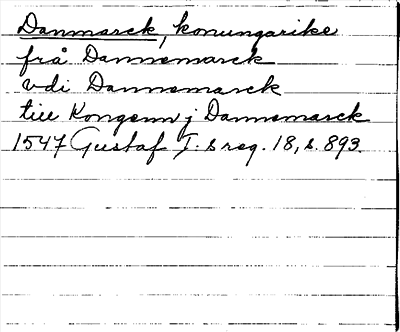 Danmarck, konungarike
frå Dannemarck
vdi Dannemarck
till Kongenn j Dannemarck
1547 Gustaf I: s reg. 18, s. 893.